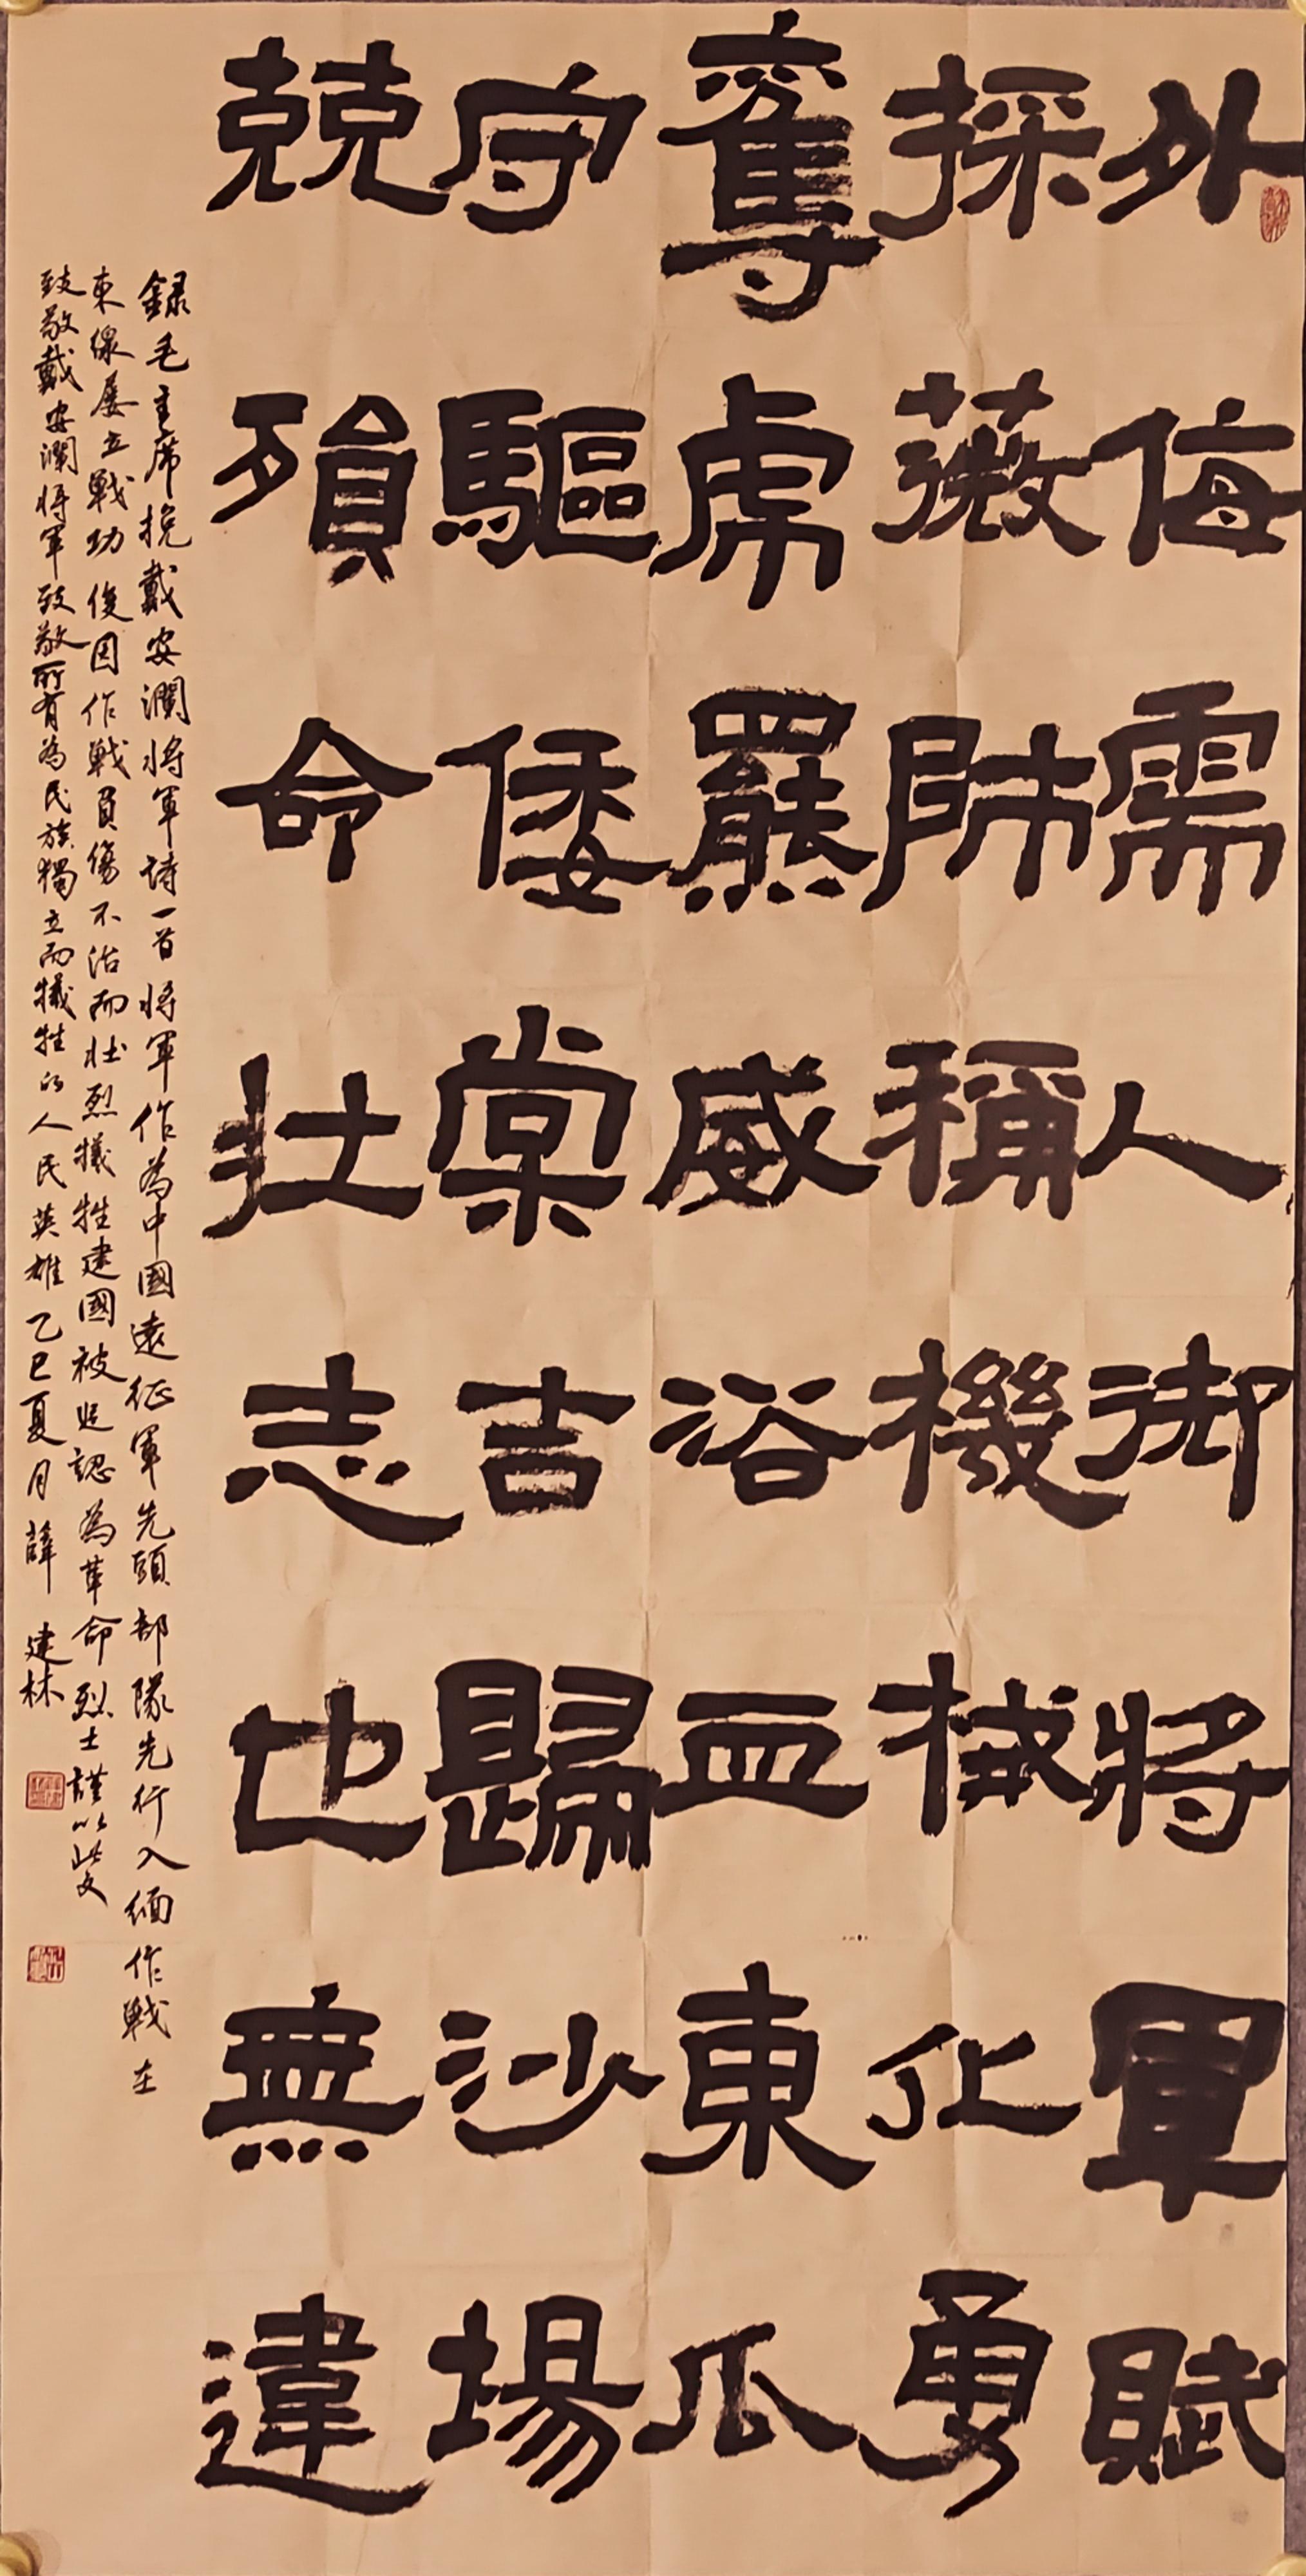 外侮需人御將軍賦
採薇師稱機械化勇
奪虎羆威浴血東瓜
守驅倭棠吉歸沙場
兢殞命壯志也無違
錄毛主席挽戴安瀾將軍詩一首將軍作為中國遠征軍先頭部隊先行入緬作戰在
東線屡立戰功後因作戰負傷不治而壯烈犧牲建國被追認為革命烈士謹以此文
致敬戴安瀾將軍致敬所有為民族獨立而犧牲的人民英雄乙巳夏月薛建林